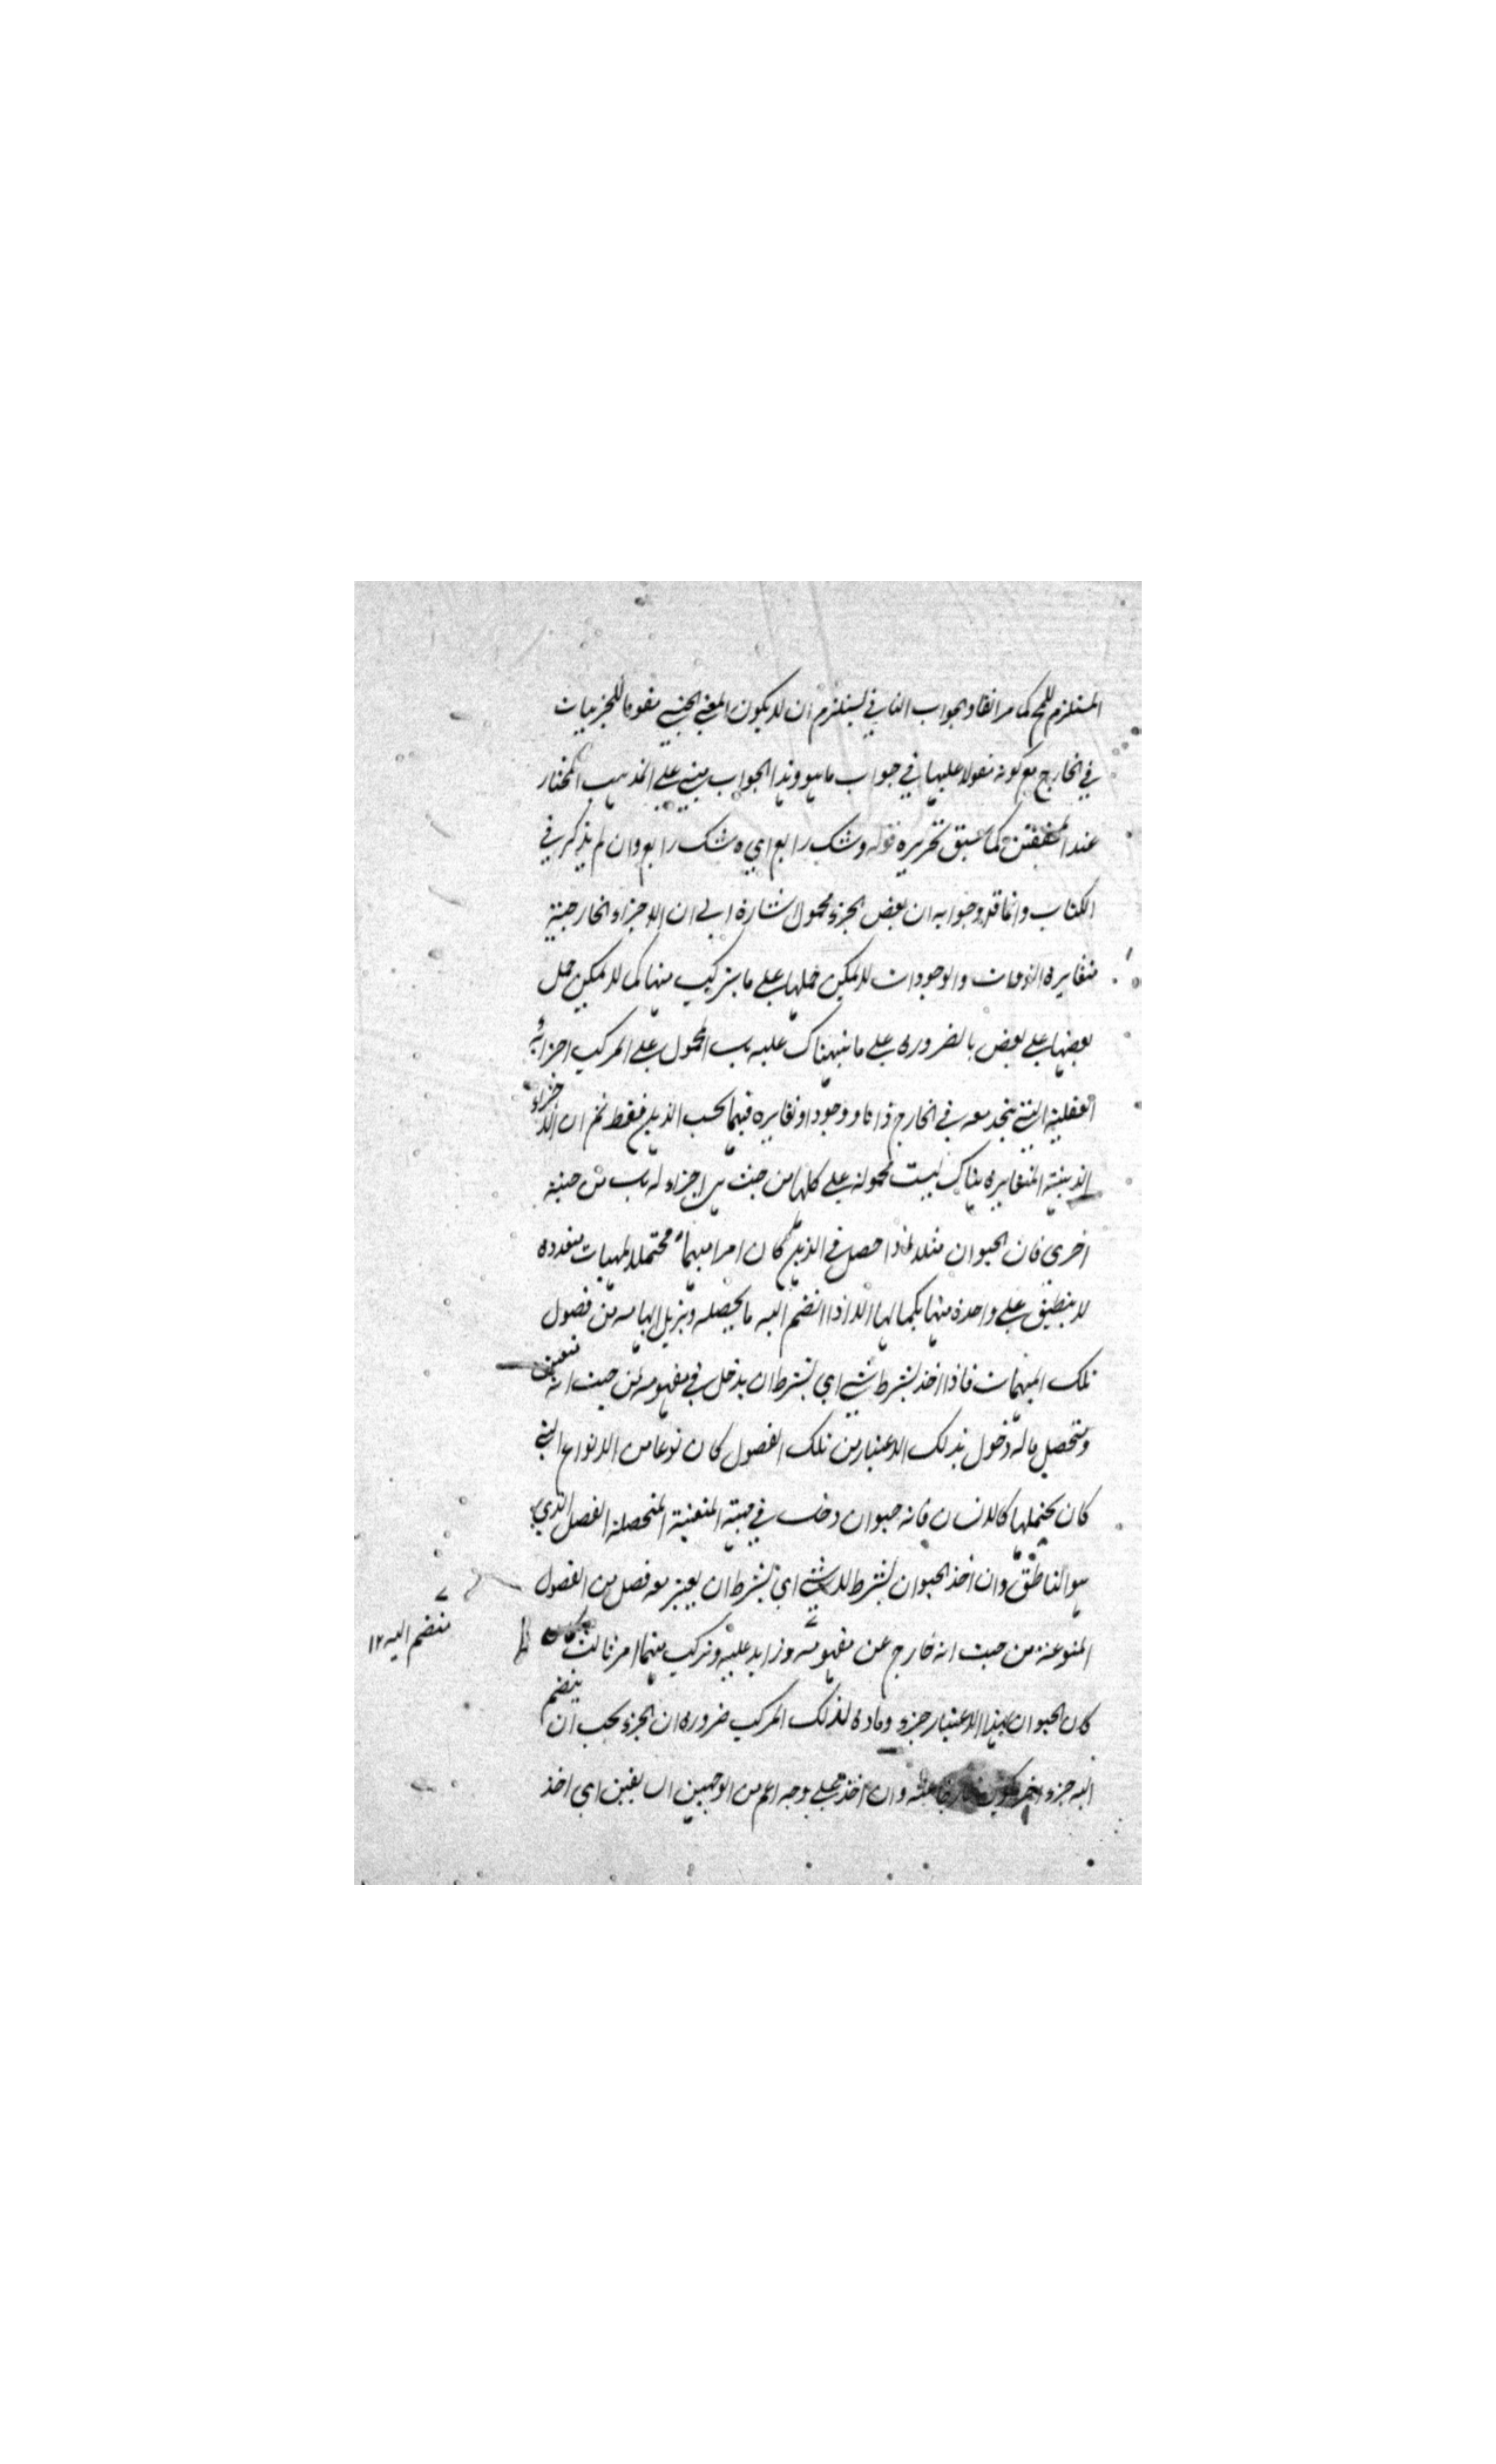 المستلزم للمح كما مر انفا والجواب الثاني يستلزم ان لا يكون المعنى الجنسي مقوما للجزئيات
في الخارج مع كونه مقولا عليها في جواب ما هو وهذا الجواب مبني على المذهب المختار
عند المحققين كما سبق تحريره قوله وشك رابع اي ه شك رابع وان لم يذكر في
الكتاب وانما قد وجوابه ان بعض الجزء محمول اشارة الى ان الاجزاء الخارجية
متغايرة الذوات والوجودات لا يمكن حملها على ما يتركب منها كما لا يمكن حمل
بعضها على بعض بالضرورة على ما نبهناك عليه بل المحمول على المركب اجزائه
العقلية التي يتحد معه في الخارج ذاتا ووجودا وتغايره فيما بحسب الذهن فقط ثم ان الاجزاء
الذهنية المتغايرة هناك ليست محمولة على كلها من حيث هي اجزاء له بل من حيثية
اخرى فان الحيوان مثلا اذا حصل في الذهن كان امرا مبهما محتملا لمهيات متعددة
لا ينطبق على واحدة منها بكمالها الا اذا انضم اليه ما يحصله ويزيل ابهامه من فصول
تلك المهيات فاذا اخذ بشرط شئ اي بشرط ان يدخل في مفهومه من حيث انه متعين
ومتحصل ما له دخول بذلك الاعتبار من تلك الفصول كان نوعا من الانواع التي
كان يحتملها كالانسان فانه حيوان دخل في مهيته المتعينة المتحصلة الفصل الذي
هو الناطق وان اخذ الحيوان بشرط لا شئ اي بشرط ان يعتبر معه فصل من الفصول
المنوعة من حيث انه خارج عن مفهومه وزايد عليه وتركب منهما امر ثالث
منضم اليه ١٢
كان الحيوان بهذا الاعتبار جزء ومادة لذلك المركب ضرورة ان الجزء يجب ان ينضم
اليه جزء اخر يكون خارجا عنه وان اخذ على وجه اعم من الوجهين السابقين اي اخذ